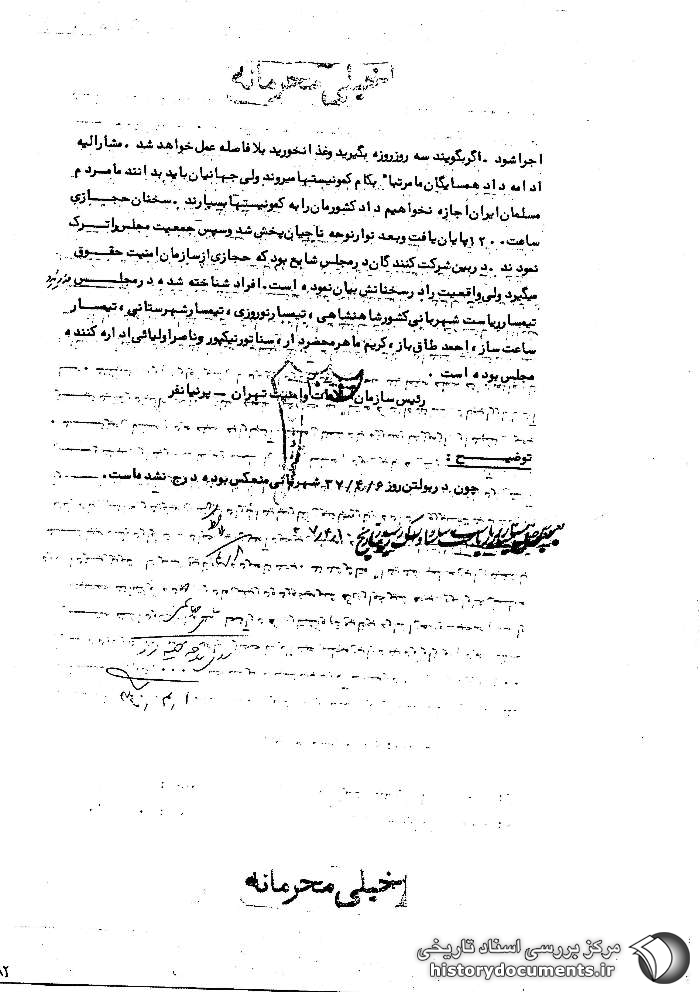 خیلی محرمانه
اجرا شود . اگر بگویند سه روز روزه بگیرید وغذا نخورید بلافاصله عمل خواهد شد . مشارالیه
ادامه داد همسایگان ما مرتبا" بکام کمونیستها میروند ولی جهانیان باید بدانند ما مردم
مسلمان ایران اجازه نخواهیم داد کشورمان را به کمونیستها بسپارند . سخنان حجازی
ساعت ۱۲۰۰ پایان یافت وبعد نوار نوحه تاجیان پخش شد وسپس جمعیت مجلس را ترک
نمودند . در بین شرکت کنندگان در مجلس شایع بود که حجازی از سازمان امنیت حقوق
میگیرد ولی واقعیت را در سخنانش بیان نموده است . افراد شناخته شده در مجلس
تیمسار ریاست شهربانی کشور شاهنشاهی ، تیمسار نوروزی ، تیمسار شهرستانی ، تیمسار
ساعت ساز ، احمد طاق باز ، کریم ماهر محضردار ، سناتور نیکپور وناصر اولیائی اداره کننده
مجلس بوده است .
رئیس سازمان اطلاعات وامنیت تهران – پرنیانفر
توضیح :
چون در بولتن روز ۳۷/۴/۶ شهربانی منعکس بوده درج نشده است .
۳۷/۴/۱۰
خیلی محرمانه
مرکز بررسی اسناد تاریخی
historydocuments.ir